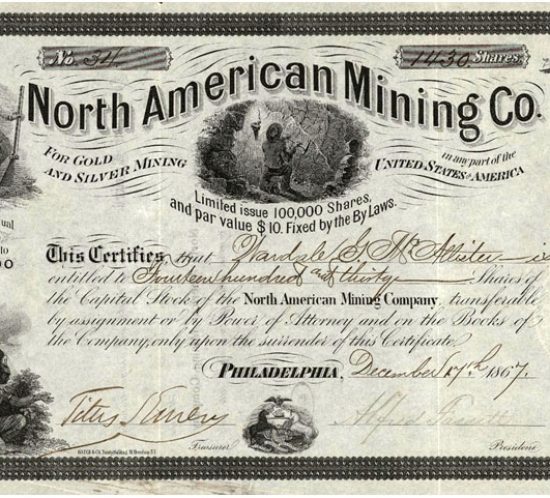 No. 34
1430 Shares
North American Mining Co.
FOR GOLD
AND SILVER MINING
in any part of the
UNITED STATES OF AMERICA
Limited issue 100,000 Shares,
and par value $10. Fixed by the By Laws.
This Certifies that Wardale G. McAllister is
entitled to Fourteen hundred and thirty Shares of
the Capital Stock of the North American Mining Company, transferable
by assignment or by Power of Attorney and on the Books of
the Company, only upon the surrender of this Certificate.
PHILADELPHIA, December 17th 1867.
Titus S Emery
Alfred
Treasurer
President